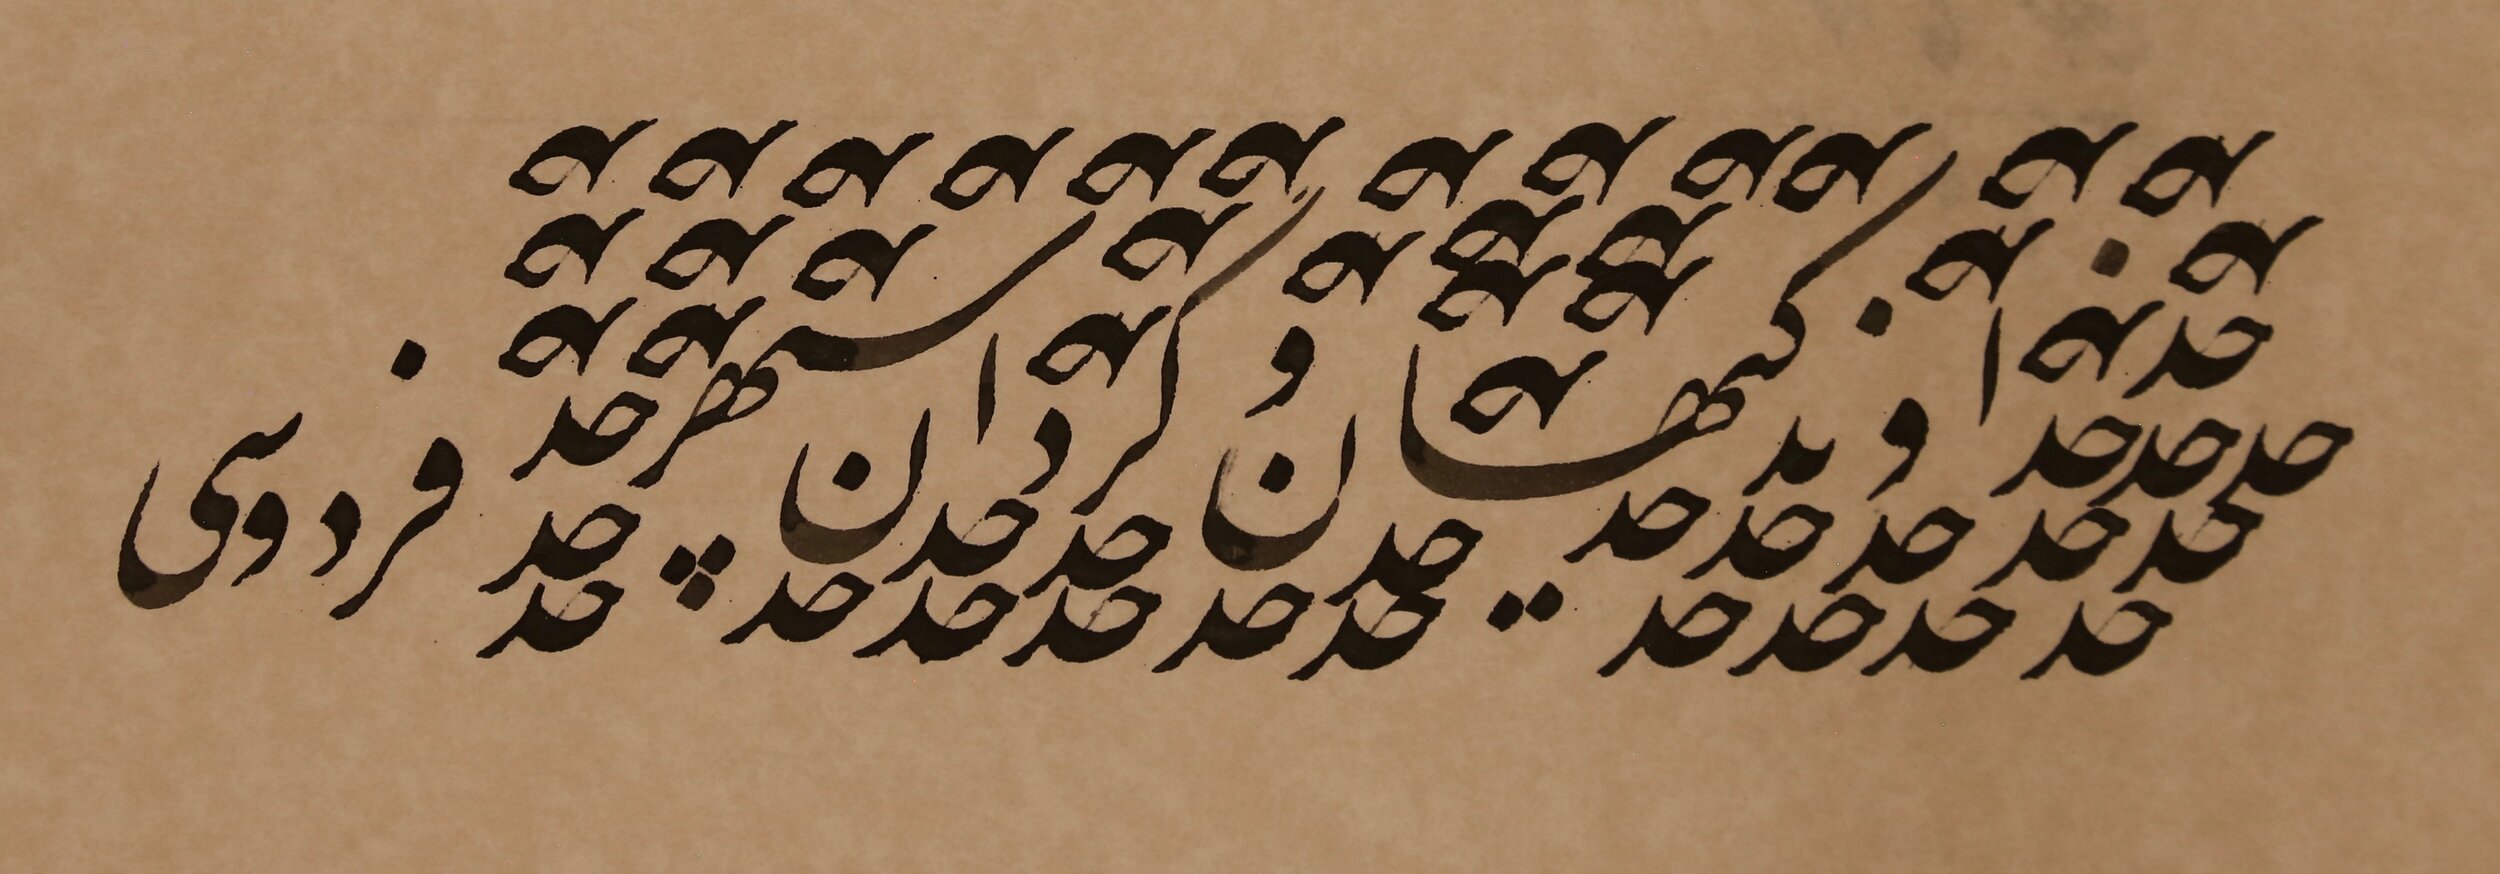 خداوند کیوان و گردان سپهر
فردوسی